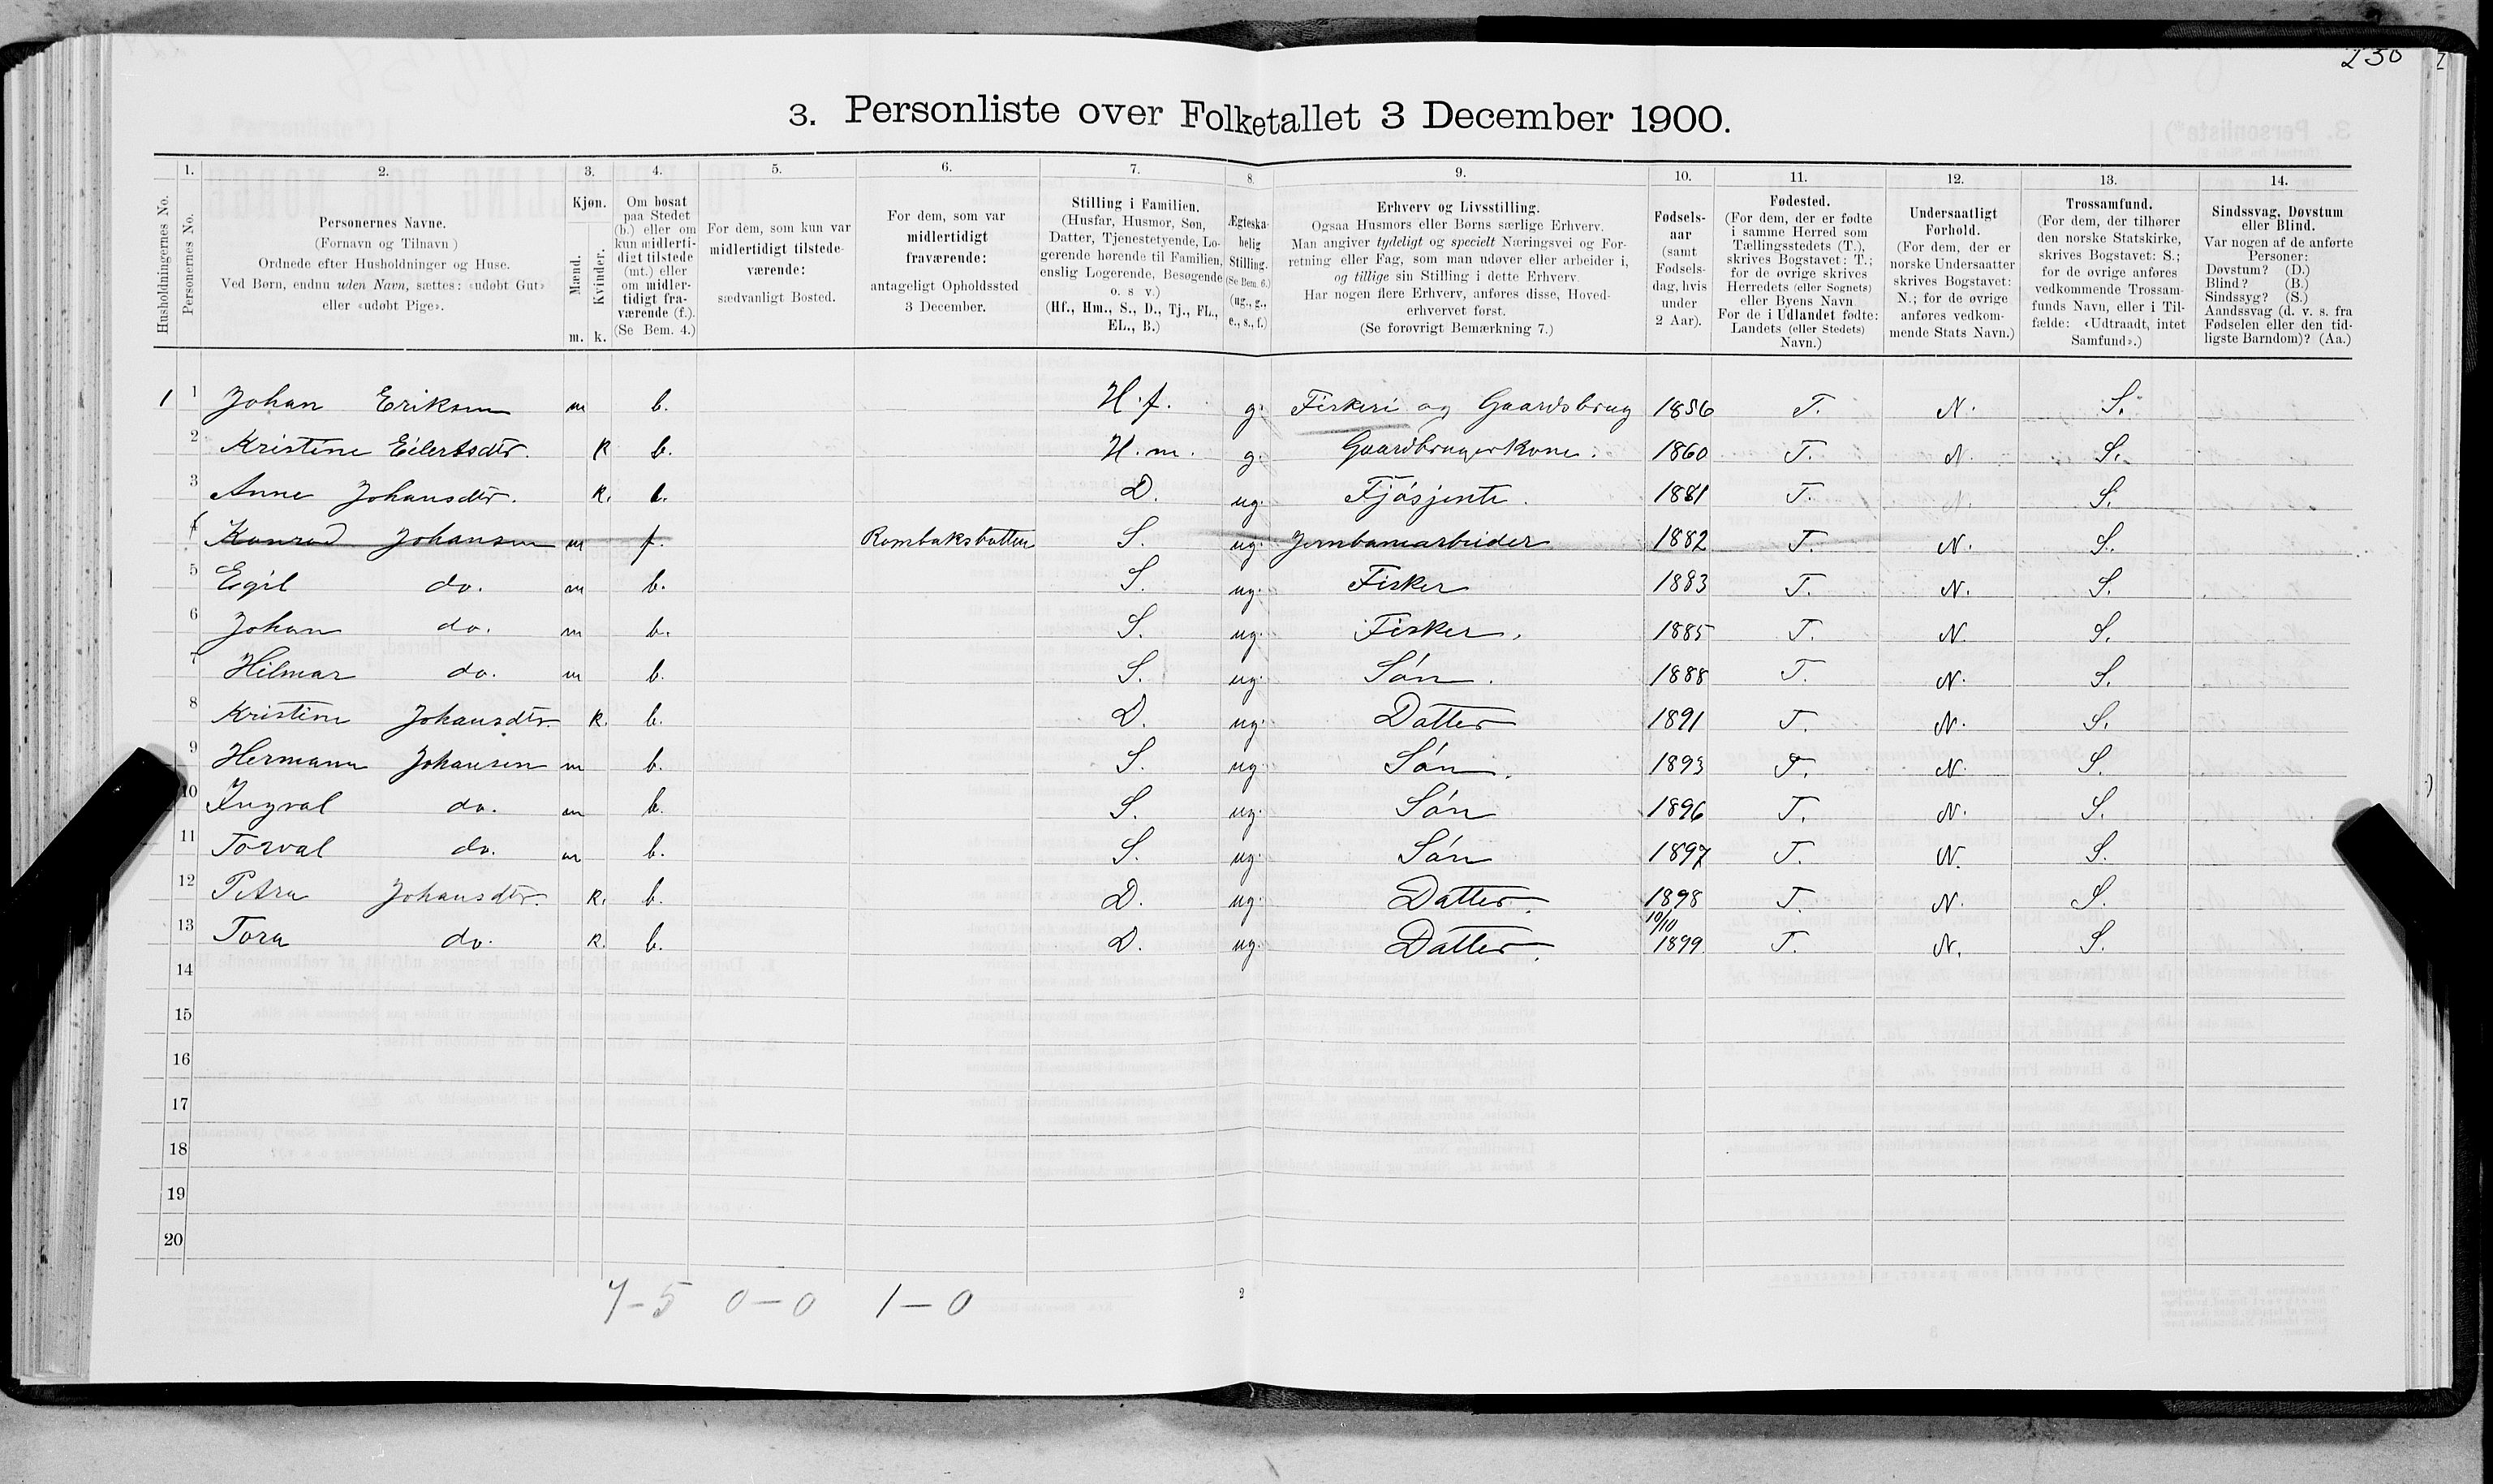 230
3. Personliste over Folketallet 3 December 1900.
Husholdningernes No.
1. Personernes No.
2. Personernes Navne.
(Fornavn og Tilnavn)
Ordnede efter Husholdninger og Huse.
Ved Børn, endnu uden Navn, sættes: «udøbt Gut»
eller «udøbt Pige».
3. Kjøn.
Mænd. m.
Kvinder. k.
4. Om bosat
paa Stedet
(b.) eller om
kun midlerti-
digt tilstede
(mt.) eller
om midler-
tidigt fra-
værende (f.).
(Se Bem. 4.)
5. For dem, som kun var
midlertidigt tilstede-
værende:
sædvanligt Bosted.
6. For dem, som var
midlertidigt
fraværende:
antageligt Opholdssted
3 December.
7. Stilling i Familien.
(Husfar, Husmor, Søn,
Datter, Tjenestetyende, Lo-
gerende hørende til Familien,
enslig Logerende, Besøgende
o. s v.)
(Hf., Hm., S., D., Tj., FL.,
EL., B.)
8. Ægteska-
belig
Stilling.
(Se Bem. 6.)
(ug., g.,
e., s., f.)
9. Erhverv og Livsstilling.
Ogsaa Husmors eller Børns særlige Erhverv.
Man angiver tydeligt og specielt Næringsvei og For-
retning eller Fag, som man udøver eller arbeider i,
og tillige sin Stilling i dette Erhverv.
Har nogen flere Erhverv, anføres disse, Hoved-
erhvervet først.
(Se forøvrigt Bemærkning 7.)
10. Fødsels-
aar
(samt
Fødsels-
dag, hvis
under
2 Aar).
11. Fødested.
(For dem, der er fødte
i samme Herred som
Tællingsstedets (T.),
skrives Bogstavet: T.;
for de øvrige skrives
Herredets (eller Sognets)
eller Byens Navn
For de i Udlandet fødte:
Landets (eller Stedets)
Navn.)
12. Undersaatligt
Forhold.
(For dem, der er
norske Undersaatter
skrives Bogstavet:
N.; for de øvrige
anføres vedkom-
mende Stats Navn.)
13. Trossamfund.
(For dem, der tilhører
den norske Statskirke,
skrives Bogstavet: S.;
for de øvrige anføres
vedkommende Trossam-
funds Navn, eller i Til-
fælde: «Udtraadt, intet
Samfund».)
14. Sindssvag, Døvstum
eller Blind.
Var nogen af de anførte
Personer:
Døvstum? (D.)
Blind? (B.)
Sindssyg? (S.)
Aandssvag (d. v. s. fra
Fødselen eller den tid-
ligste Barndom)? (Aa.)
1 1 Johan Eriksen m b. H.f. g. Fiskeri og Gaardsbrug 1856 T. N. S.
2 Kristine Eilertsdtr. k b. H.m. g. Gaardbrugerkone. 1860 T. N. S.
3 Anne Johansdtr. k. b. D. ug. Fjøsjente. 1881 T. N. S.
4 Konrad Johansen m f. Rombaksbotten S. ug. Jernbanearbeider 1882 T. N. S.
5 Egil do. m b. S. ug. Fisker 1883 T. N. S.
6 Johan do. m b. S. ug. Fisker. 1885 T. N. S.
7 Hilmar do. m b. S. ug. Søn. 1888 T. N. S.
8 Kristine Johansdtr. k. b. D. ug. Datter 1891 T. N. S.
9 Hermann Johansen m b. S. ug. Søn. 1893 T. N. S.
10 Ingval do. m b. S. ug. Søn 1896 T. N. S.
11 Torval do. m b. S. ug. Søn 1897 T. N. S.
12 Petra Johansdtr. k. b. D. ug. Datter. 1898 T. N. S.
13 Tora do. k. b. D. ug. Datter. 10/10 1899. T. N. S.
14
15
16
17
18
19
20
7-5 0-0 1-0
2